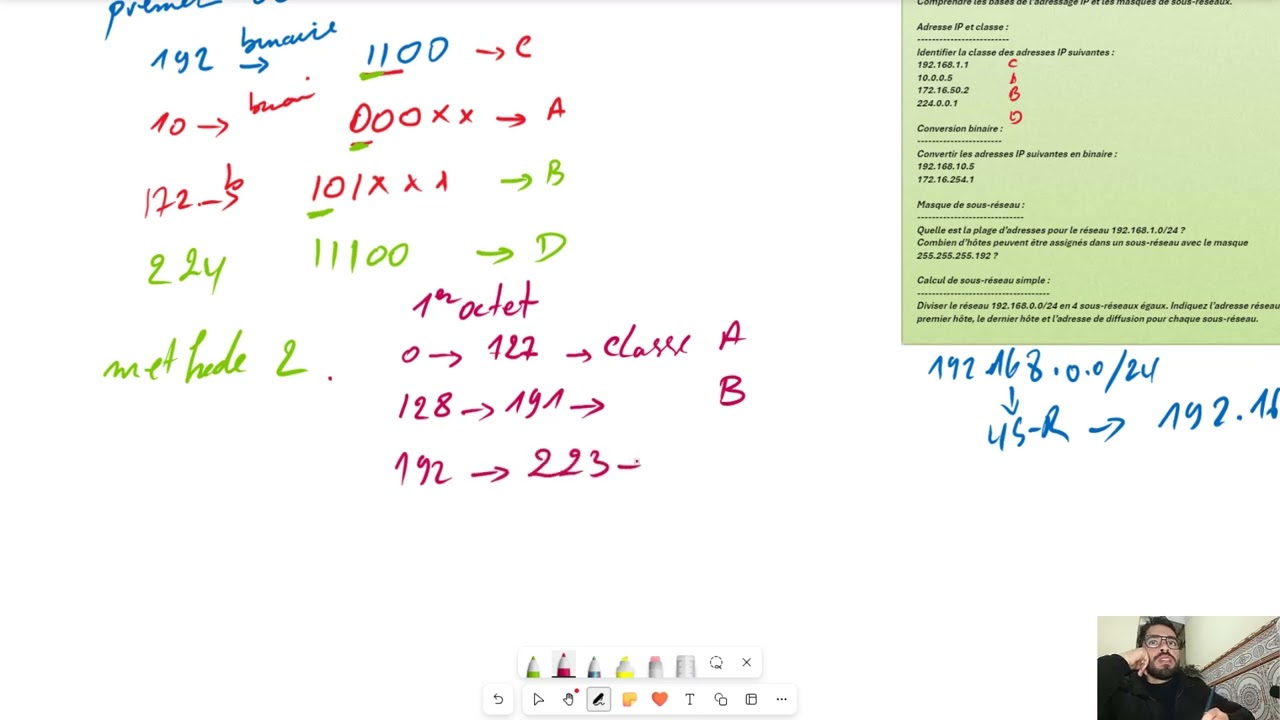 premier
192 binaire → 1100 → C
10 → 000xx → A
172 → b 101xx1 → B
224 11100 → D
1er octet
methode 2.
0 → 127 → classe A
128 → 191 → B
192 → 223 –
Comprendre les bases de l'adressage IP et les masques de sous-réseaux.
Adresse IP et classe :
-------------------------
Identifier la classe des adresses IP suivantes :
192.168.1.1 C
10.0.0.5 A
172.16.50.2 B
224.0.0.1 D
Conversion binaire :
-----------------------
Convertir les adresses IP suivantes en binaire :
192.168.10.5
172.16.254.1
Masque de sous-réseau :
-----------------------------
Quelle est la plage d'adresses pour le réseau 192.168.1.0/24 ?
Combien d'hôtes peuvent être assignés dans un sous-réseau avec le masque
255.255.255.192 ?
Calcul de sous-réseau simple :
------------------------------------
Diviser le réseau 192.168.0.0/24 en 4 sous-réseaux égaux. Indiquez l'adresse réseau
premier hôte, le dernier hôte et l'adresse de diffusion pour chaque sous-réseau.
192.168.0.0/24
↓
4S-R → 192.16